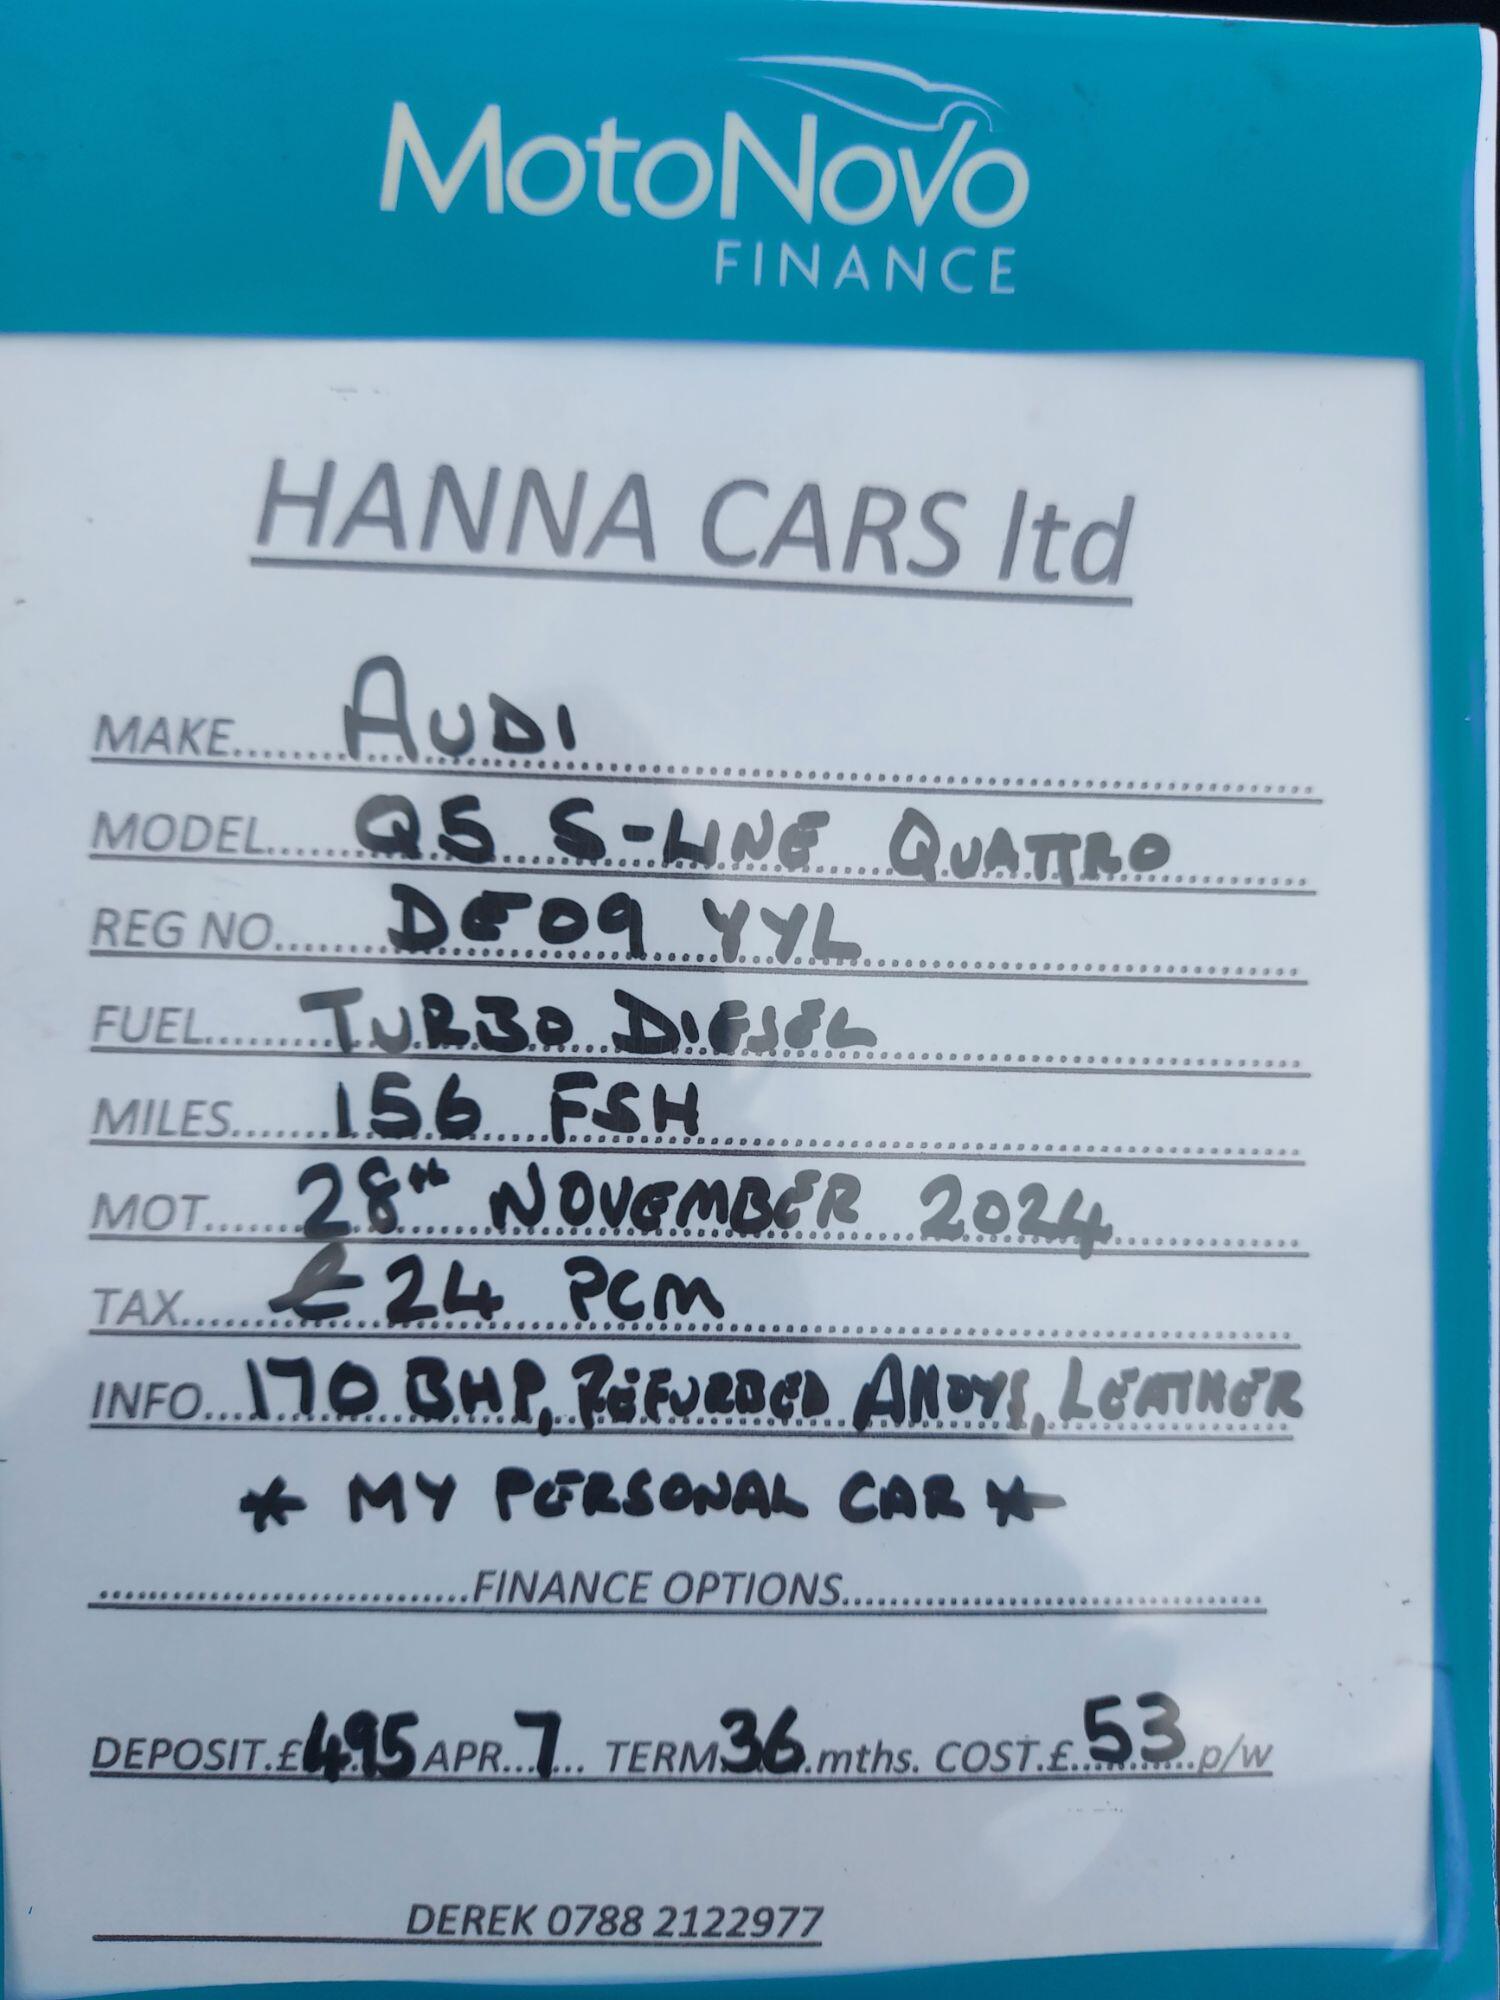 MotoNovo
FINANCE
HANNA CARS ltd
MAKE...... AUDI
MODEL...... Q5 S-LINE QUATTRO
REG NO...... DE09 YYL
FUEL...... TURBO DIESEL
MILES...... 156 FSH
MOT...... 28TH NOVEMBER 2024
TAX...... £24 PCM
INFO... 170 BHP, REFURBED ALLOYS, LEATHER
* MY PERSONAL CAR *
......FINANCE OPTIONS......
DEPOSIT.£495 APR...7... TERM 36.mths. COST.£..53..p/w
DEREK 0788 2122977